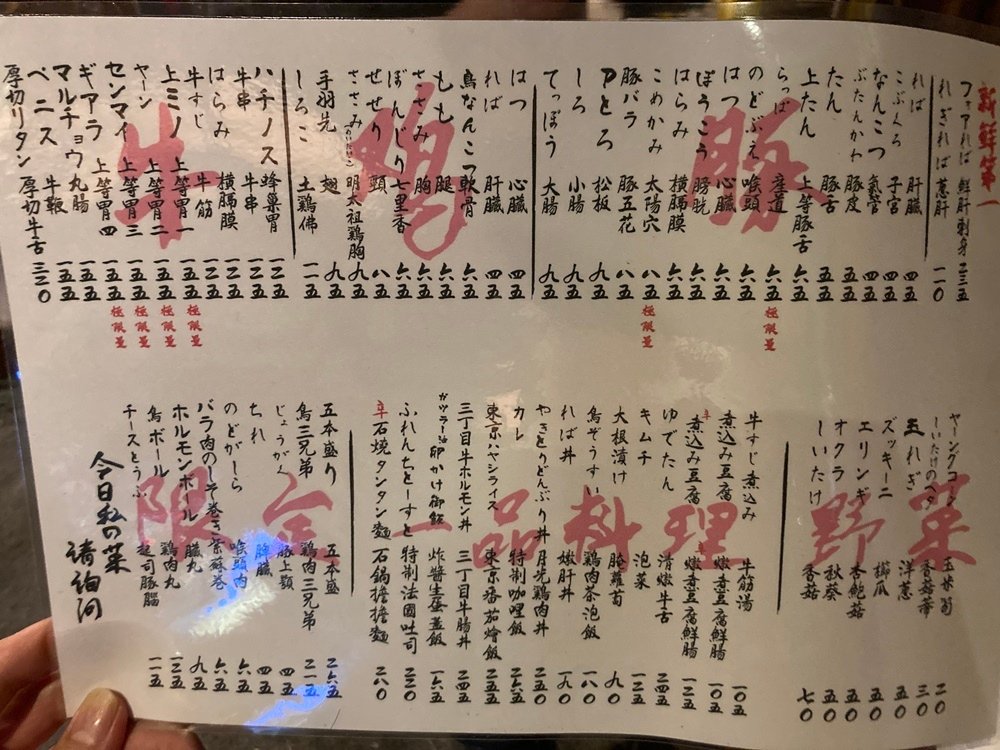 新鮮第一
フォアれば 鮮肝刺身 二三五
ねぎれば 蔥肝 一一〇
豚
れば 肝臓 四五
こぶくろ 子宮 四五
なんこつ 氣管 四五
ぶたんかわ 豚皮 五五
たん 豚舌 五五
上たん 上等豚舌 六五
らっぱ 産道 六五 極限量
のどぶえ 喉頭 六五
はつ 心臓 六五
ぼうこう 膀胱 六五
はらみ 横膈膜 六五
こめかみ 太陽穴 八五 極限量
豚バラ 豚五花 八五
Pとろ 松板 九五
しろ 小腸 九五
てっぽう 大腸 九五
鶏
はつ 心臓 四五
れば 肝臓 四五
鳥なんこつ 軟骨 六五
もも 腿 六五
ささみ 胸 六五
ぼんじり 七里香 六五
せせり 頸 八五
ささみ 明太祖鶏胸 九五
手羽先 翅 九五
しろこ 土鶏佛 一一五
牛
ハチノス 蜂巣胃 一二五
牛串 牛串 一二五
はらみ 横膈膜 一二五
牛すじ 牛筋 一二五
上ミノ 上等胃一 一五五 極限量
ヤーン 上等胃二 一五五 極限量
センマイ 上等胃三 一五五 極限量
ギアラ 上等胃四 一五五 極限量
マルチョウ 丸腸 一五五
ペニス 牛鞭 一五五
厚切りタン 厚切牛舌 三三〇
野菜
ヤーングコーン 玉米筍 二〇
しいたけのへた 香菇蒂 三〇
玉ねぎ 洋蔥 五〇
ズッキーニ 櫛瓜 五〇
エリンギ 杏鮑菇 五〇
オクラ 秋葵 五〇
しいたけ 香菇 七〇
一品料理
牛すじ煮込み 牛筋湯 一〇五
煮込み豆腐 燉煮豆腐鮮腸 一〇五
辛煮込み豆腐 辛燉煮豆腐鮮腸 一二五
ゆでたん 清燉牛舌 二四五
キムチ 泡菜 一二五
大根漬け 醃蘿蔔 九〇
鳥ぞうすい 鶏肉茶泡飯 一八〇
れば丼 嫩肝丼 一九〇
やきとりどんぶり丼 月光鶏肉丼 二五〇
カレー 特制咖哩飯 二六五
東京ハヤシライス 東京番茄燴飯 二五五
三丁目牛ホルモン丼 三丁目牛腸丼 二四五
ガツラー油卵かけ御飯 炸醬生蛋蓋飯 一六五
ふれんちとーすと 特制法國吐司 二三〇
辛石焼タンタン麺 石鍋擔擔麺 二八〇
限金
五本盛り 五本盛 二六五
鳥三兄弟 鶏肉三兄弟 二一五
じょうがく 豚上顎 四五
ちれ 脾臓 四五
のどがしら 喉頭肉 六五
バラ肉のしそ巻き 紫蘇巻 六五
ホルモンボール 臓丸 九五
鳥ボール 鶏肉丸 一三五
チーズとうふ 起司豚腦 一一五
今日私の菜
請詢問